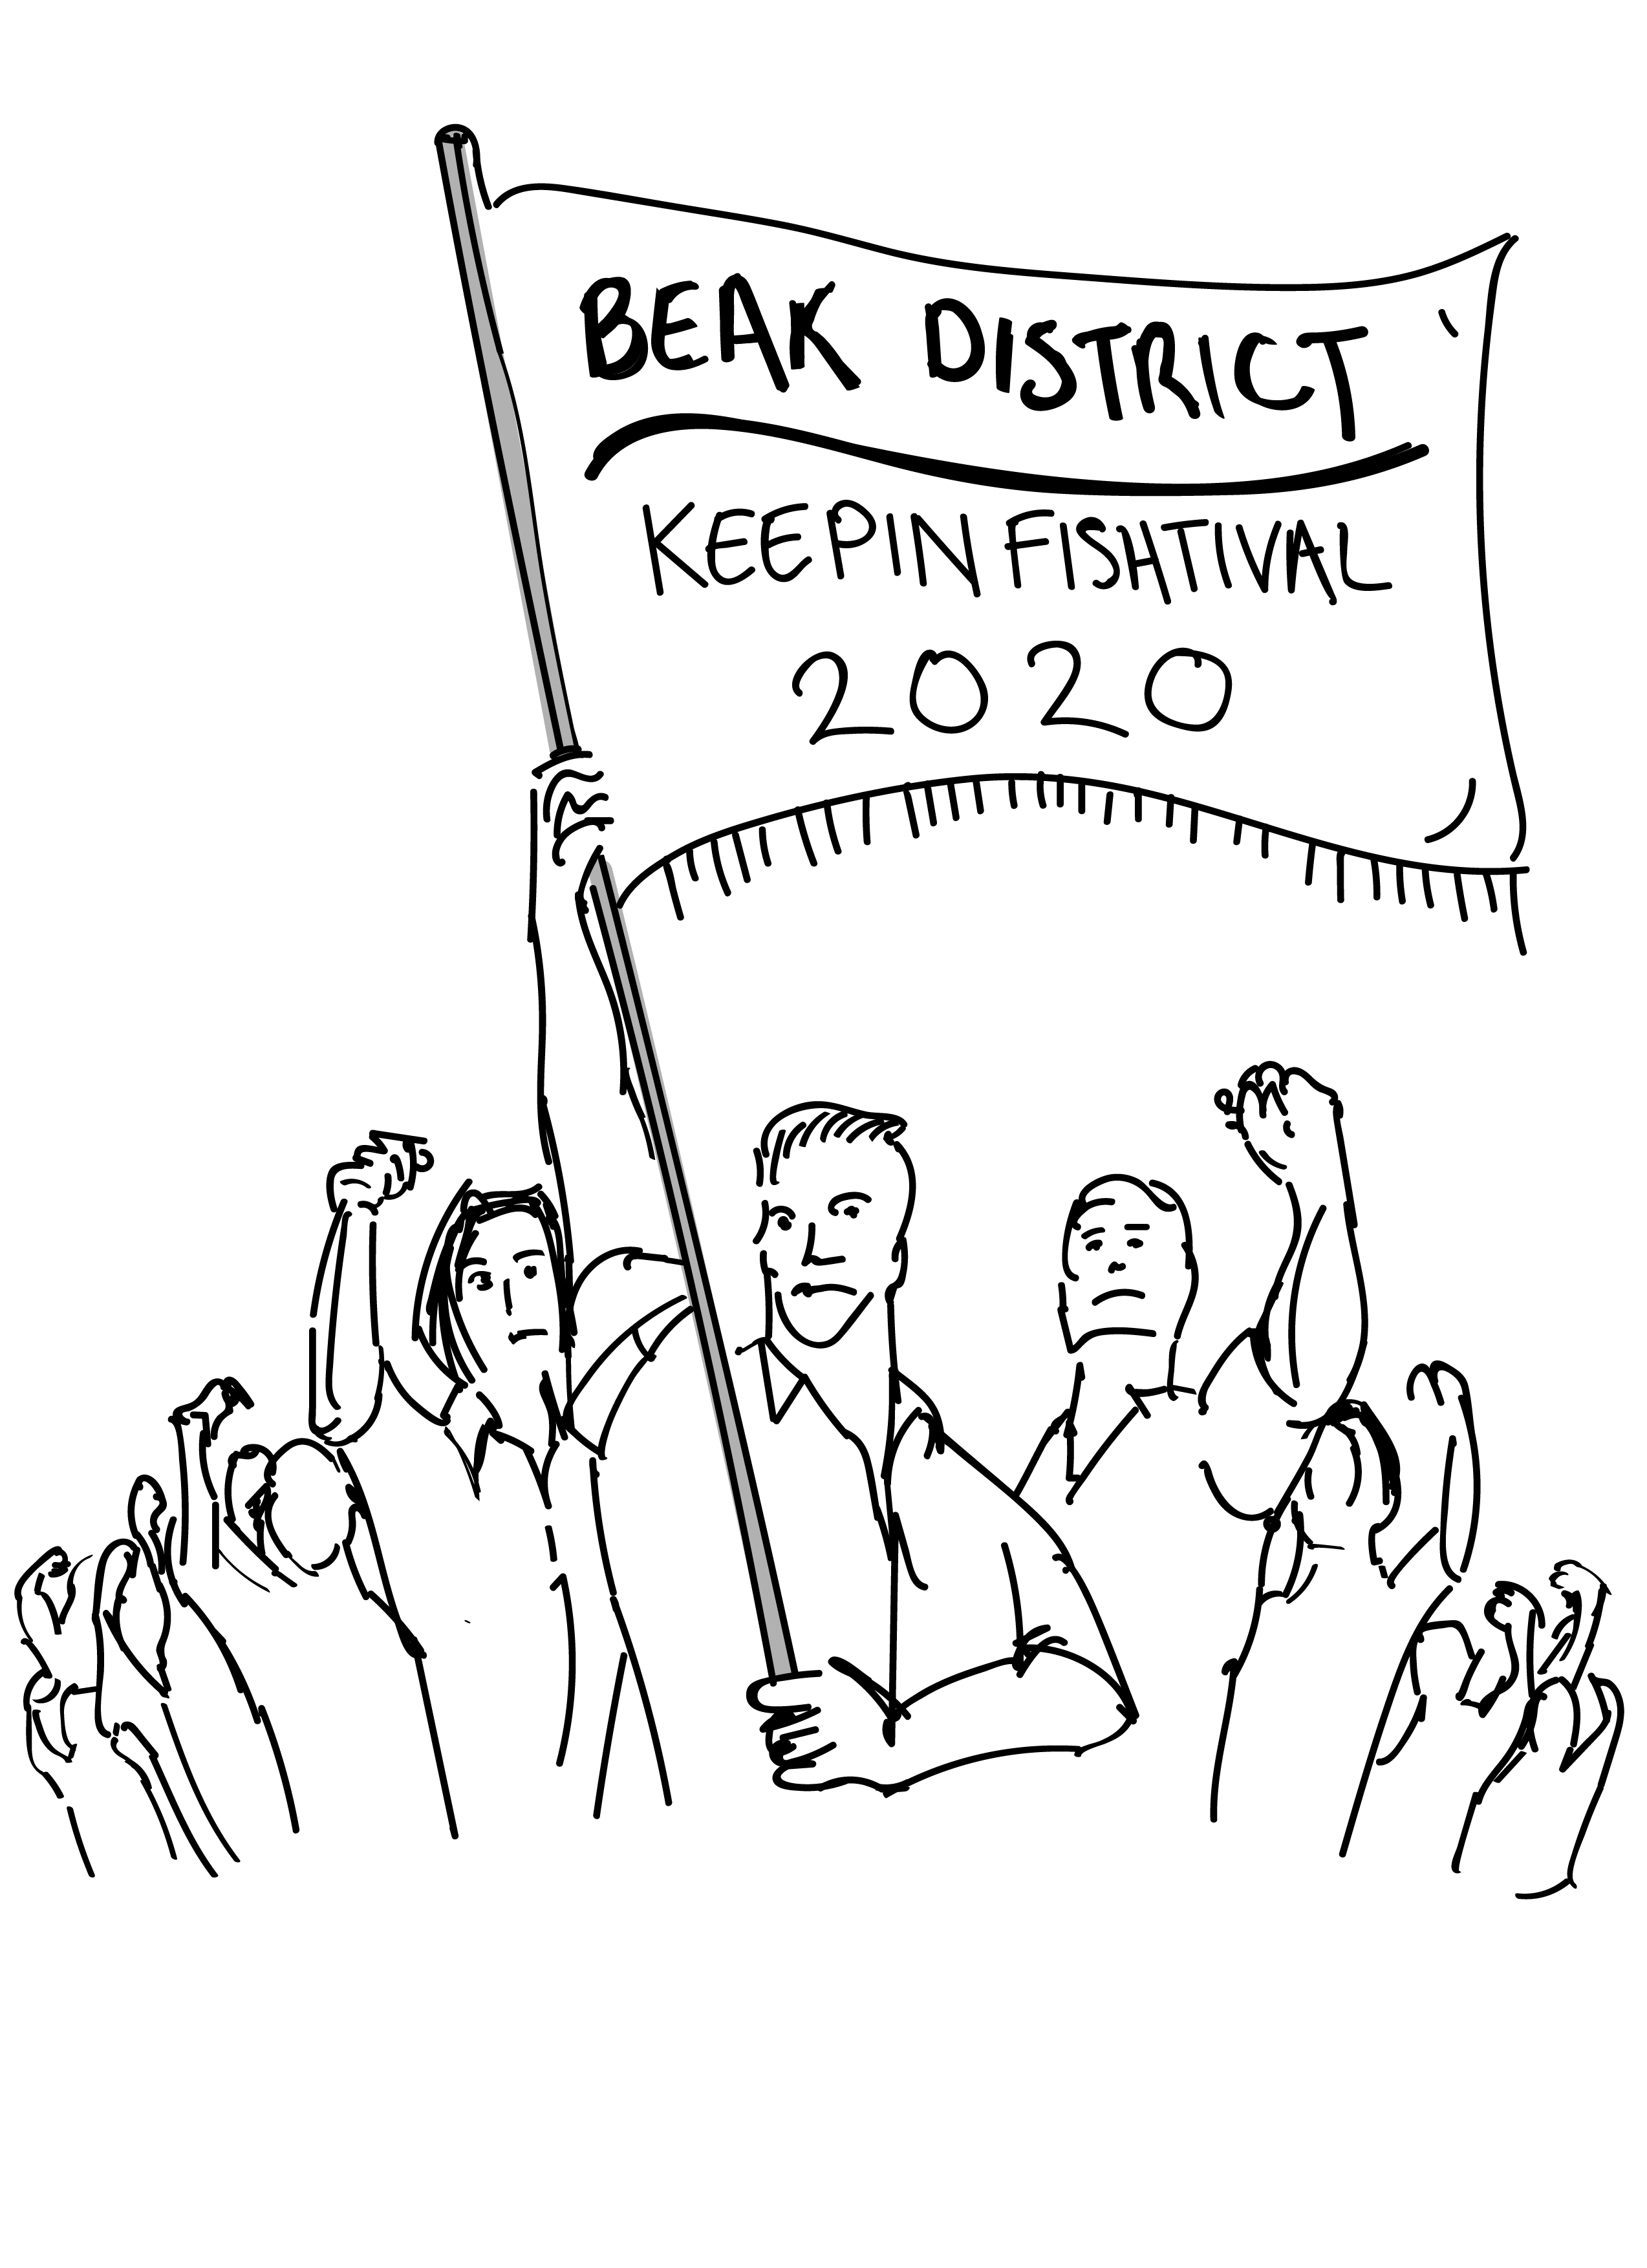 BEAK DISTRICT
KEEPIN FISHTIVAL
2020